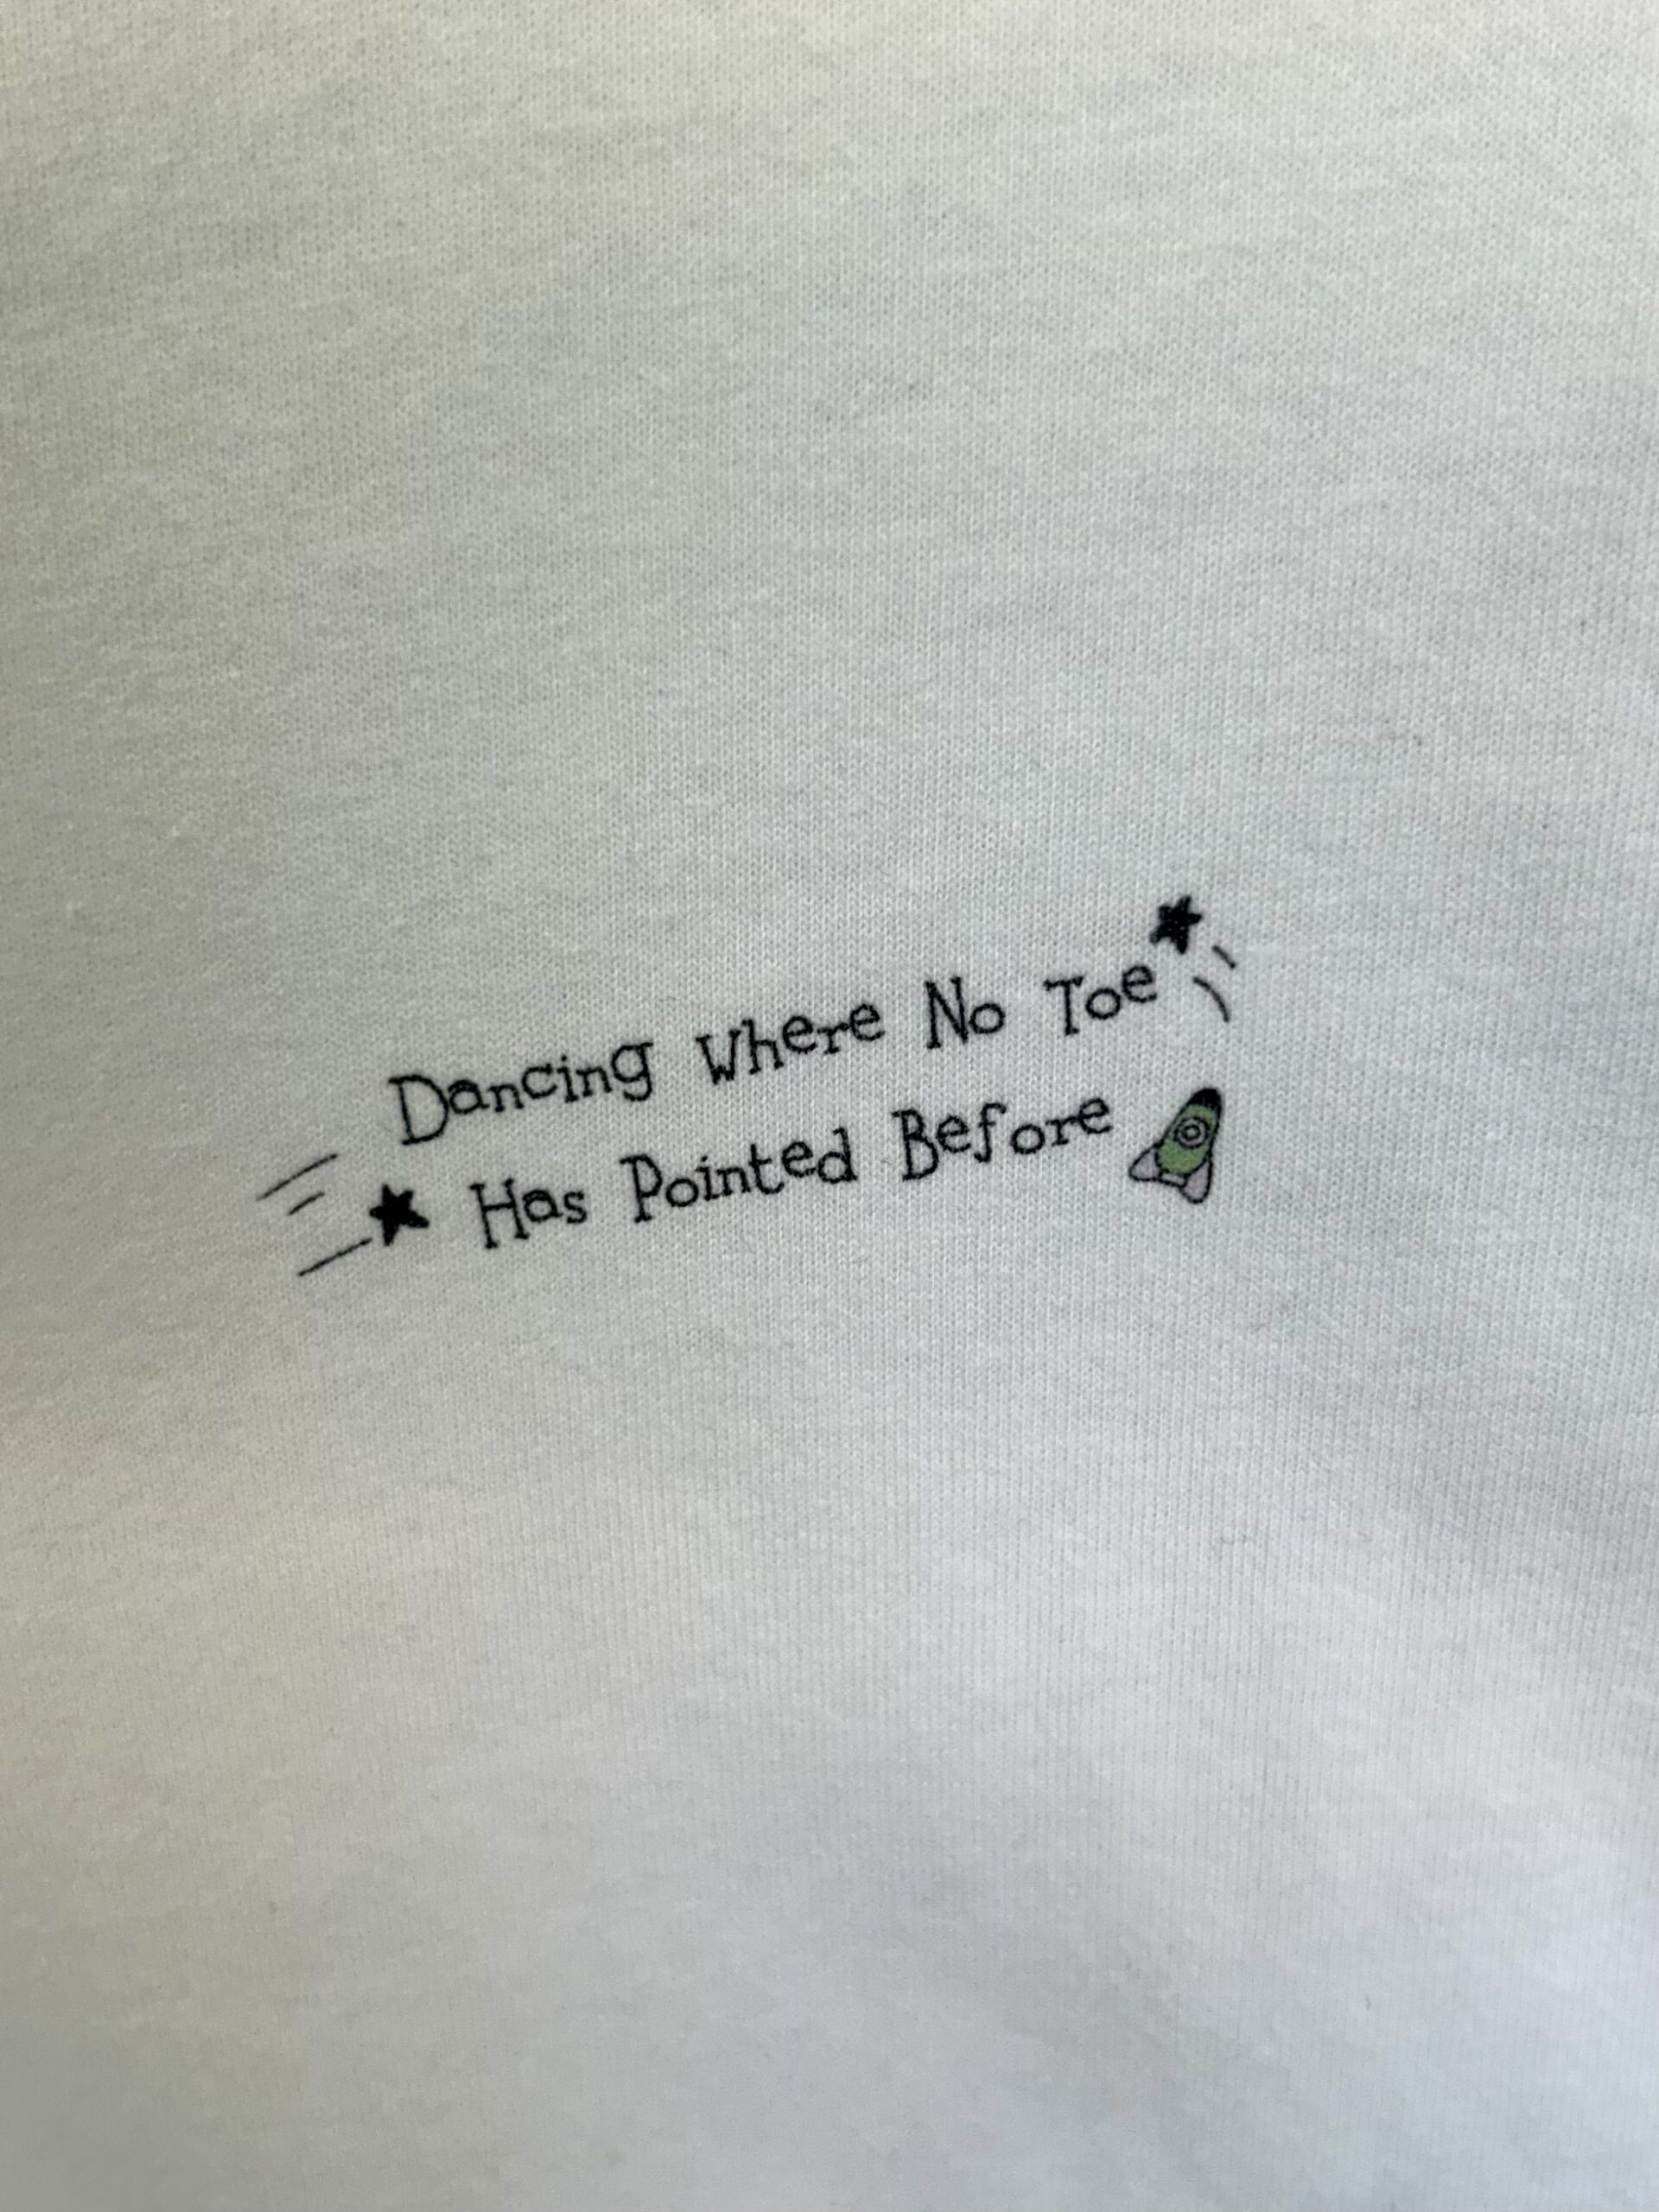 Dancing Where No Toe
Has Pointed Before